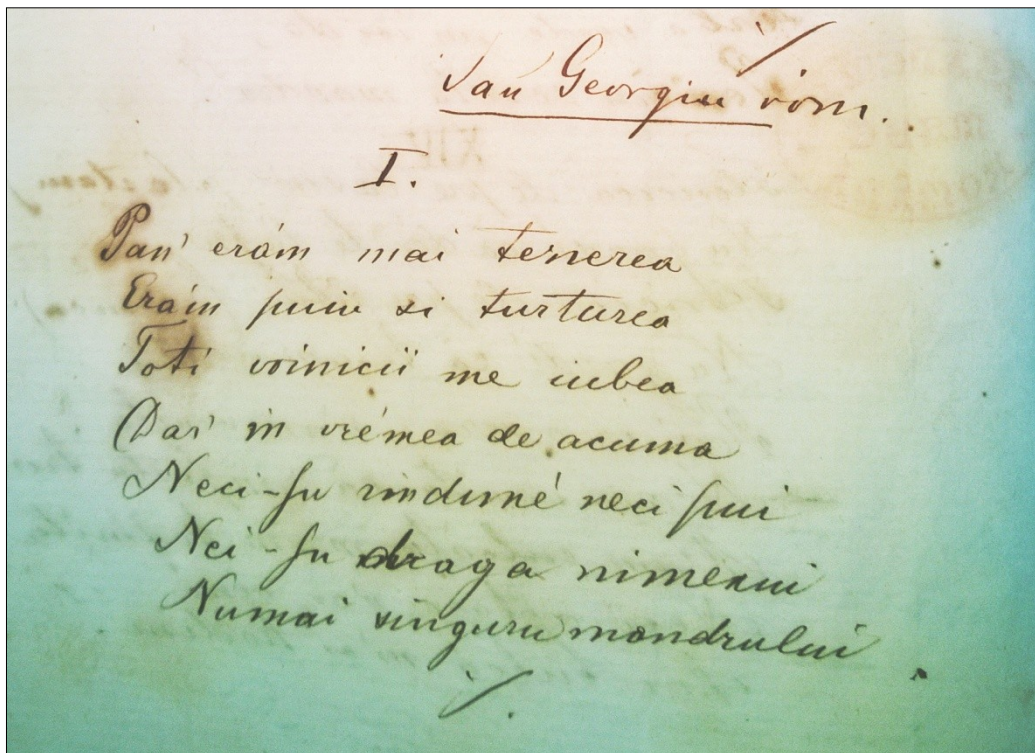 San Georgiu rom.
I.
Pan' erám mai tenerea
Erám puiu si turturea
Toti voinicii me iubea
Dar' in vrémea de acuma
Neci-su rindune neci pui
Neci-su draga nimenui
Numai singuru mandrului